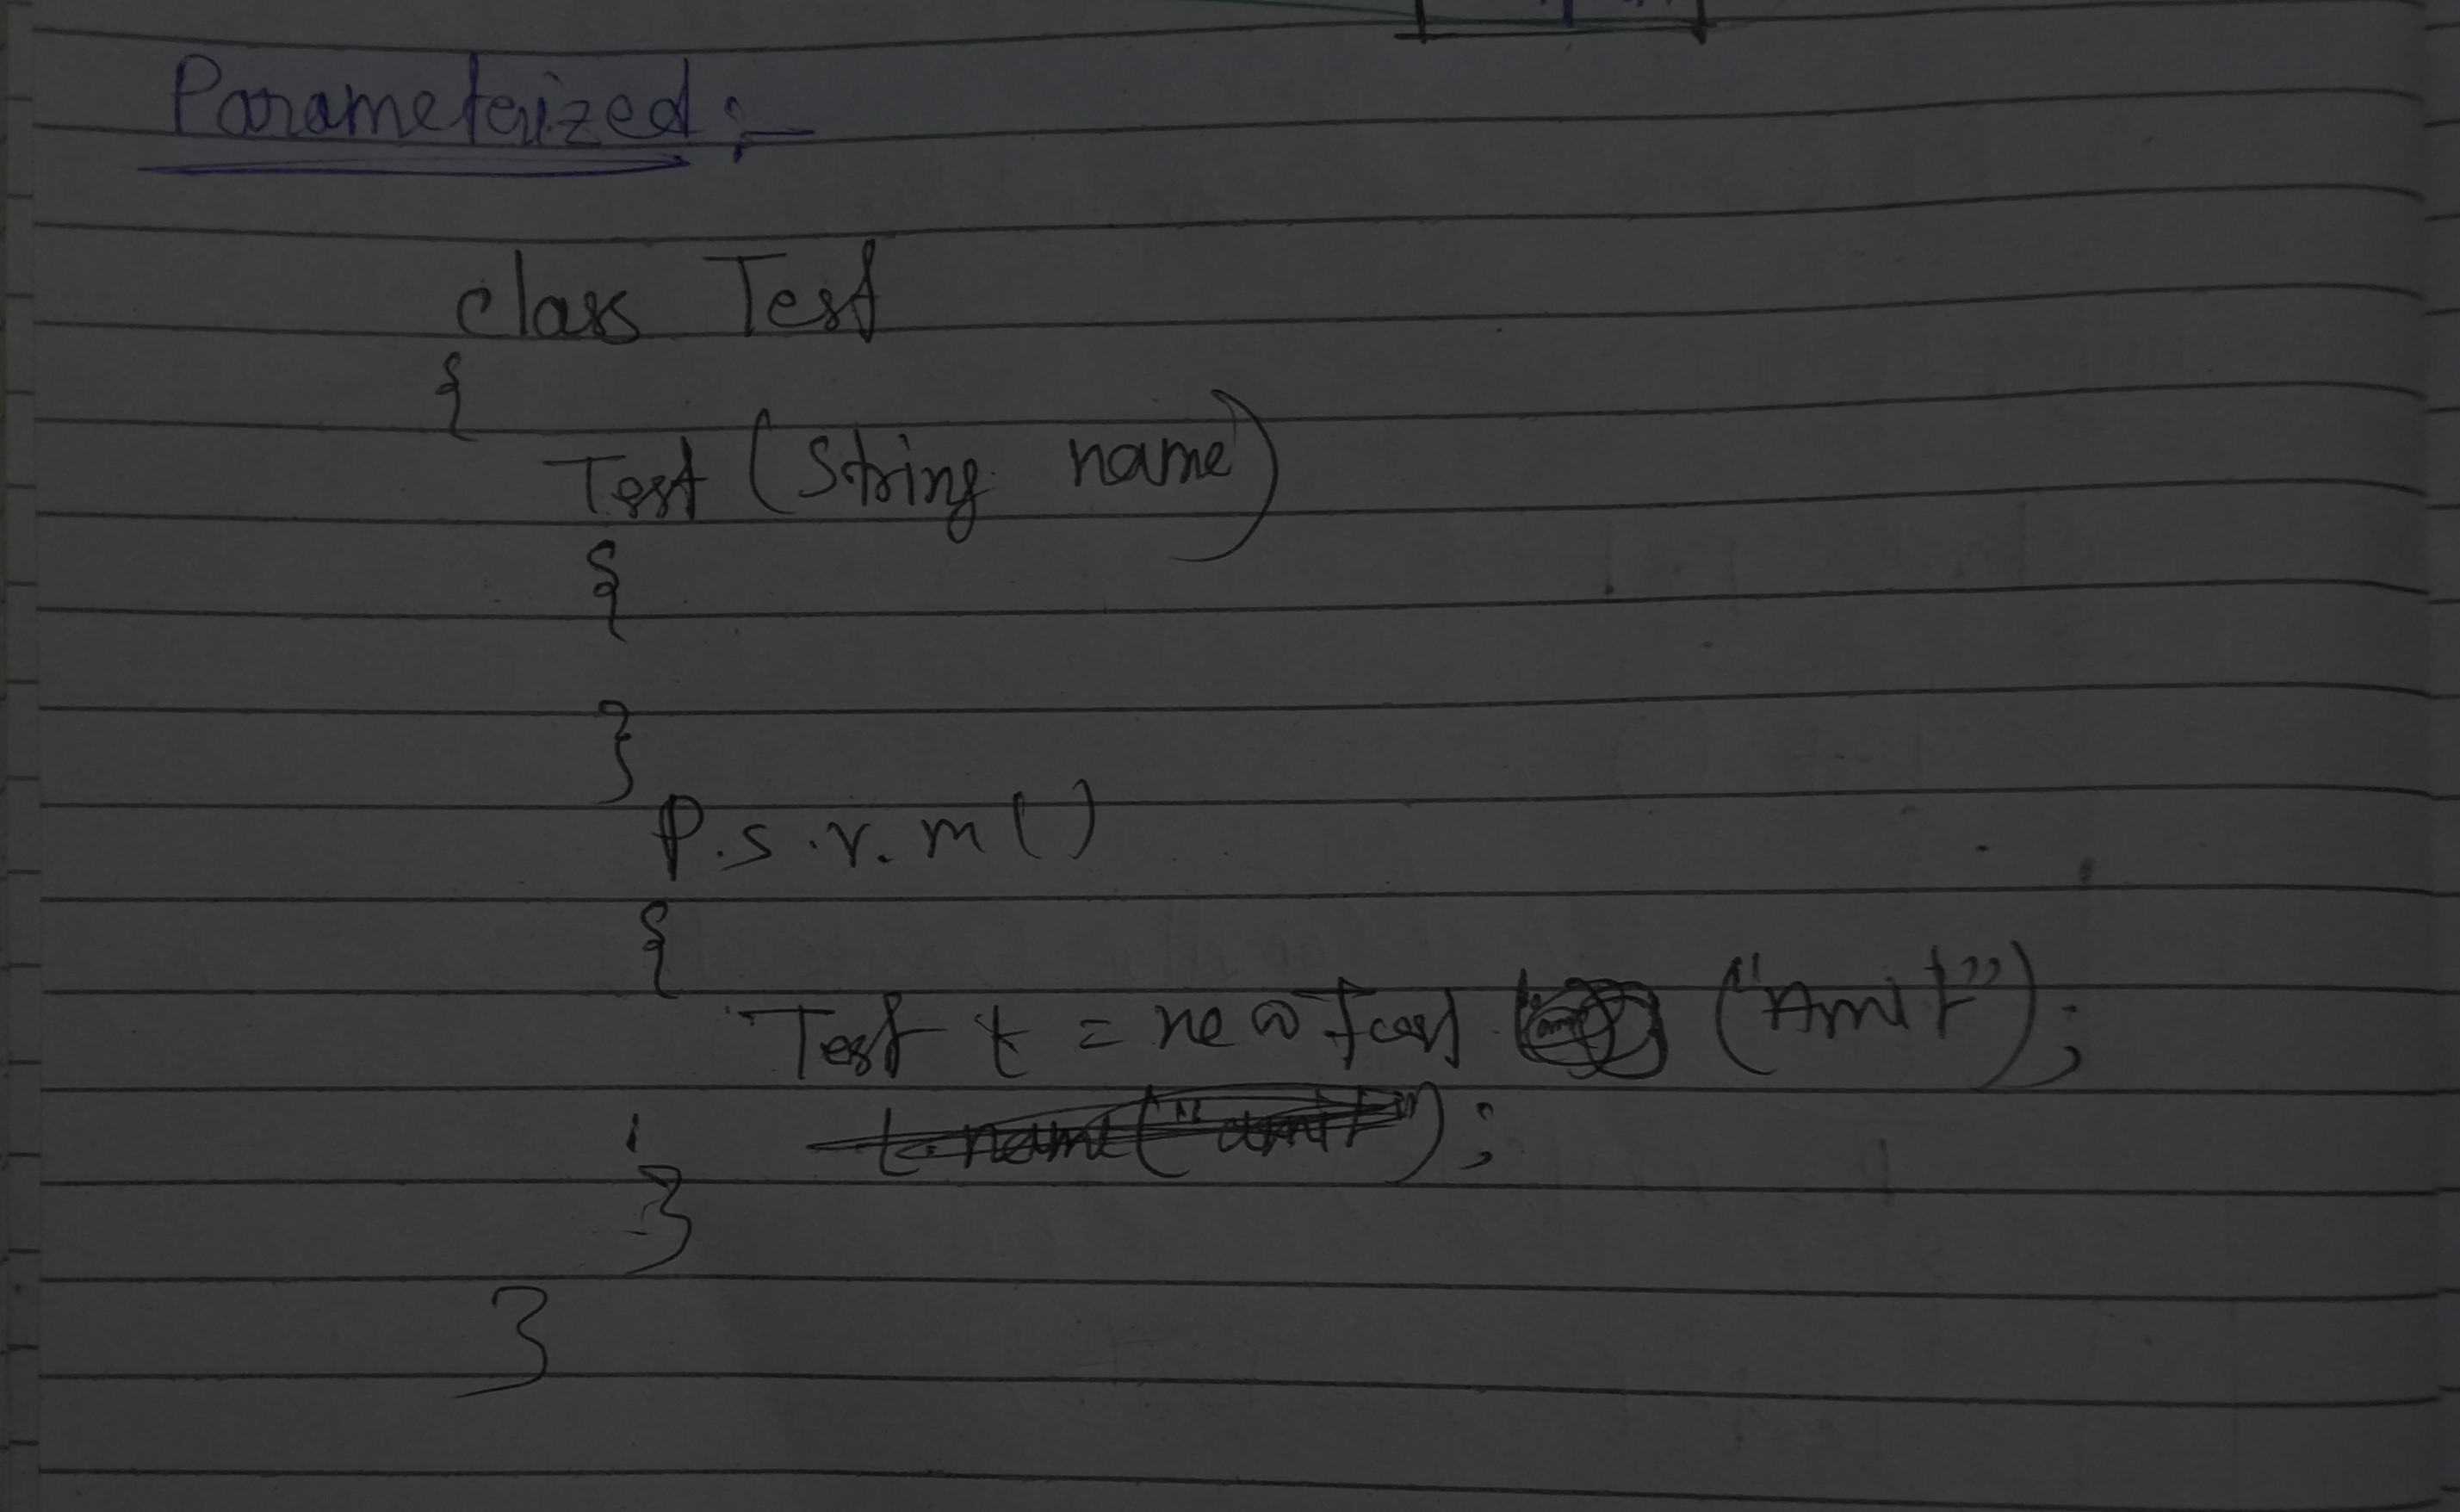 Parameterized :-
class Test
{
Test (String name)
{
}
P.s.v.m()
{
Test t = new Test ("Amit");
t.name("amit");
}
}